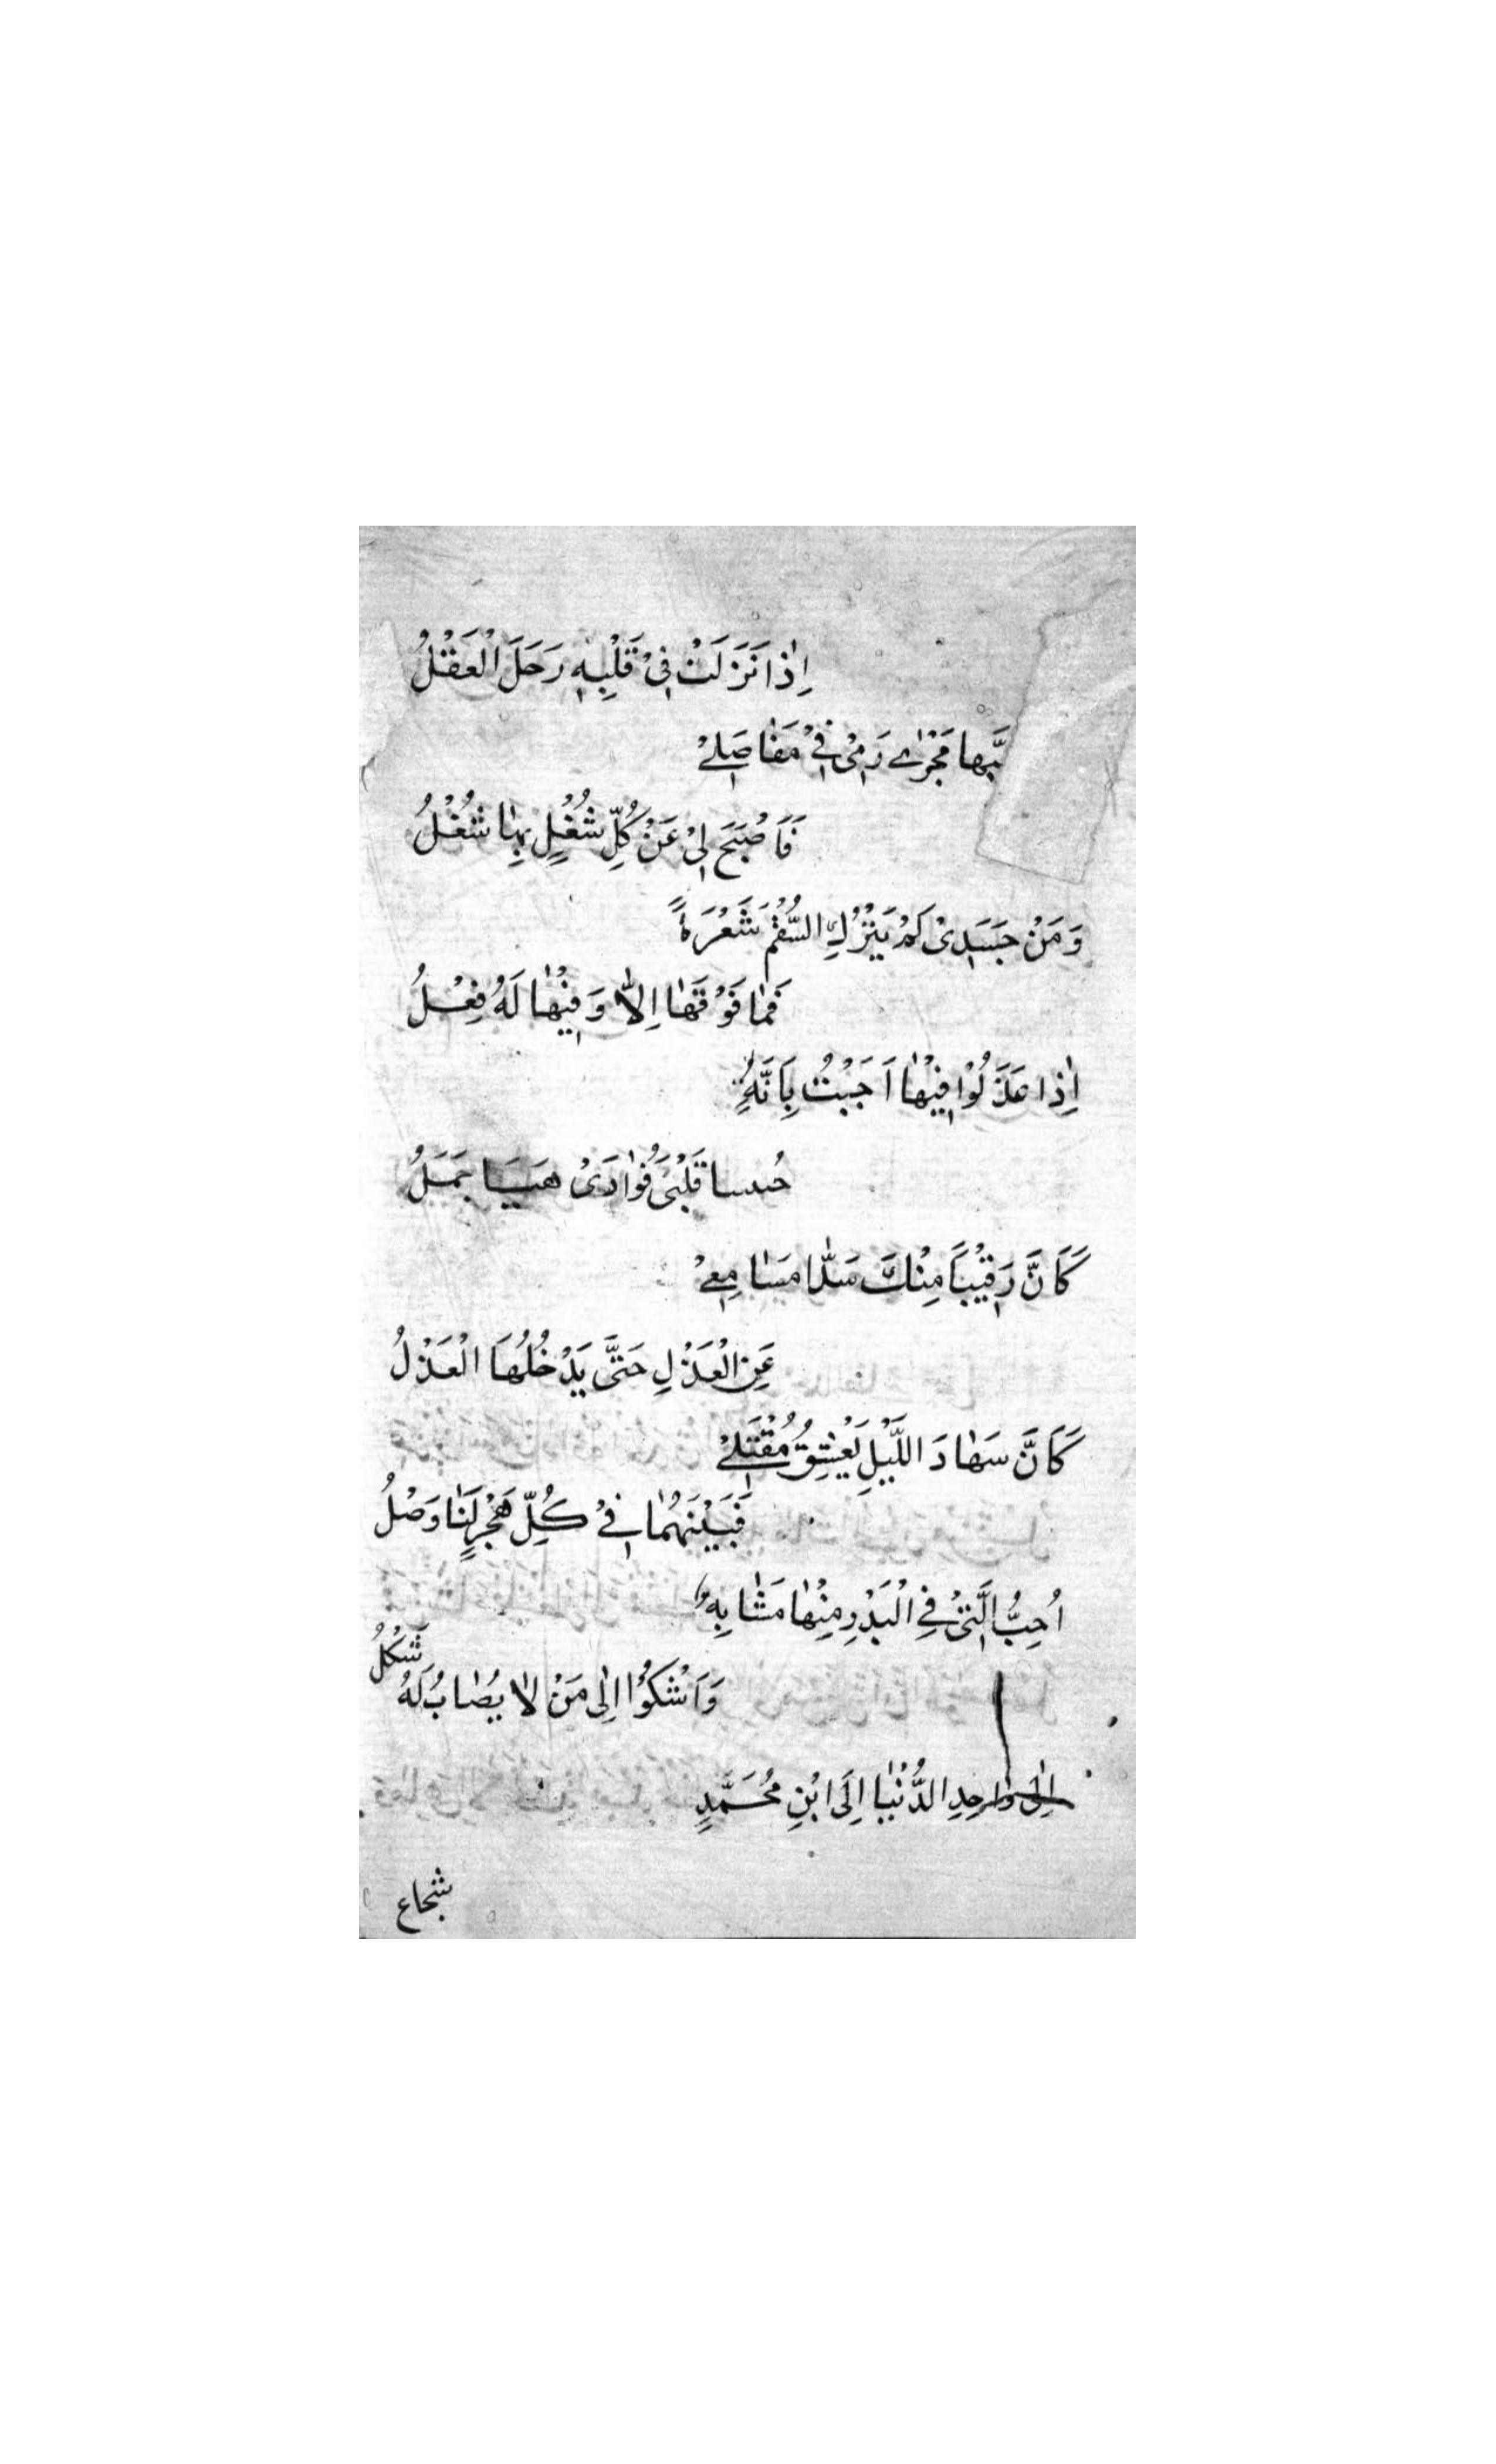 اِذَا نَزَلَتْ فِيْ قَلْبِهٖ رَحَلَ الْعَقْلُ
ـبُّهَا مَجْرٰى دَمِيْ فِيْ مَفَاصِلِيْ
فَاَصْبَحَ لِيْ عَنْ كُلِّ شُغْلٍ بِهَا شُغْلُ
وَمَنْ جَسَدِيْ لَمْ يَتْرُكِ السُّقْمُ شَعْرَةً
فَمَا فَوْقَهَا اِلَّا وَفِيْهَا لَهُ فِعْلُ
اِذَا عَذَلُوْا فِيْهَا اَجَبْتُ بِاَنَّةٍ
قَلْبِيْ فُوَادِيْ هَيَا جَمَلُ
كَاَنَّ رَقِيْبًا مِنْكَ سَدَّ مَسَامِعِيْ
عَنِ الْعَذْلِ حَتّٰى يَدْخُلَهَا الْعَذْلُ
كَاَنَّ سَهَادَ اللَّيْلِ يَعْشِقُ مُقْتَلِيْ
فَبَيْنَهُمَا فِيْ كُلِّ هَجْرٍ لَنَا وَصْلُ
اُحِبُّ الَّتِيْ فِي الْبَدْرِ مِنْهَا مَشَابِهٌ
وَاَشْكُوْا اِلٰى مَنْ لَا يُصَابُ لَهُ شَكْلُ
اِلٰى وَاحِدِ الدُّنْيَا اِلَى ابْنِ مُحَمَّدٍ
شجاع